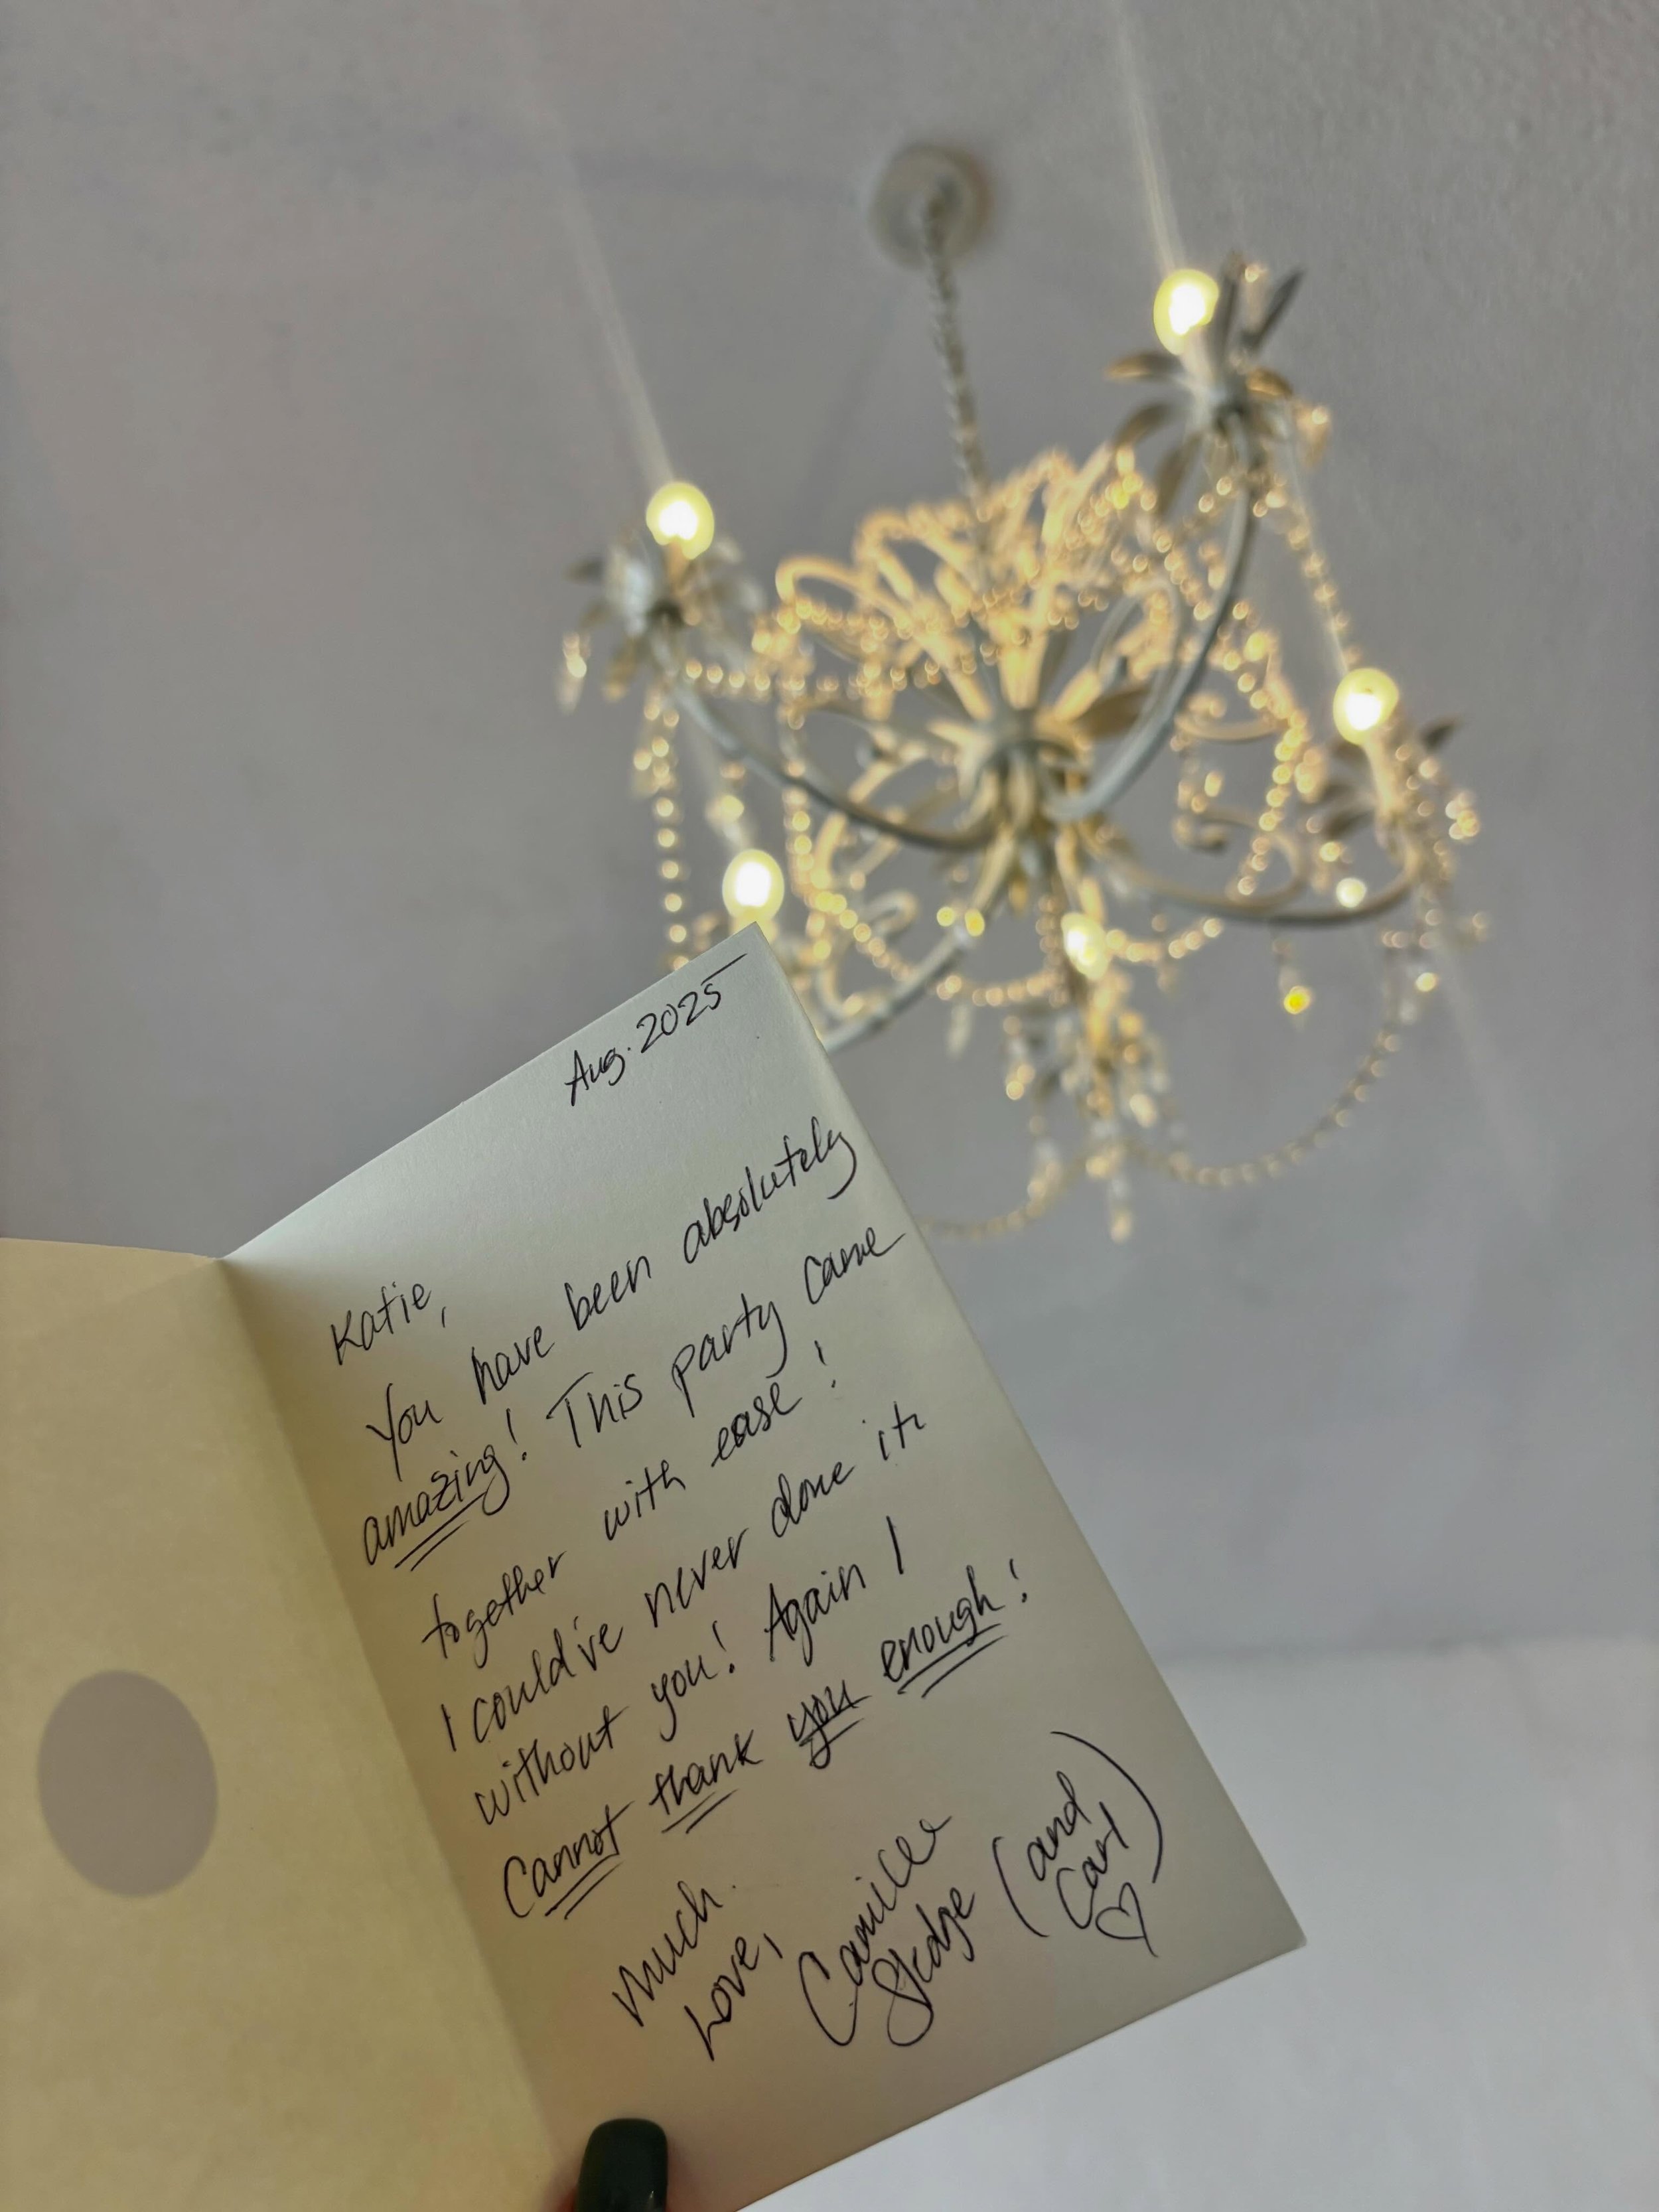 Aug. 2025
Katie,
You have been absolutely
amazing! This party came
together with ease!
I could've never done it
without you! Again I
cannot thank you enough!
Much
Love,
Camille
Sledge
(and
Carl)